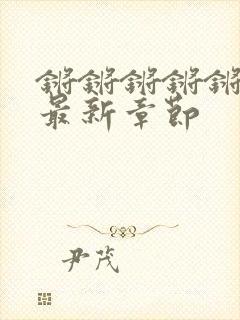 锵锵锵锵锵
最新章节
尹茂